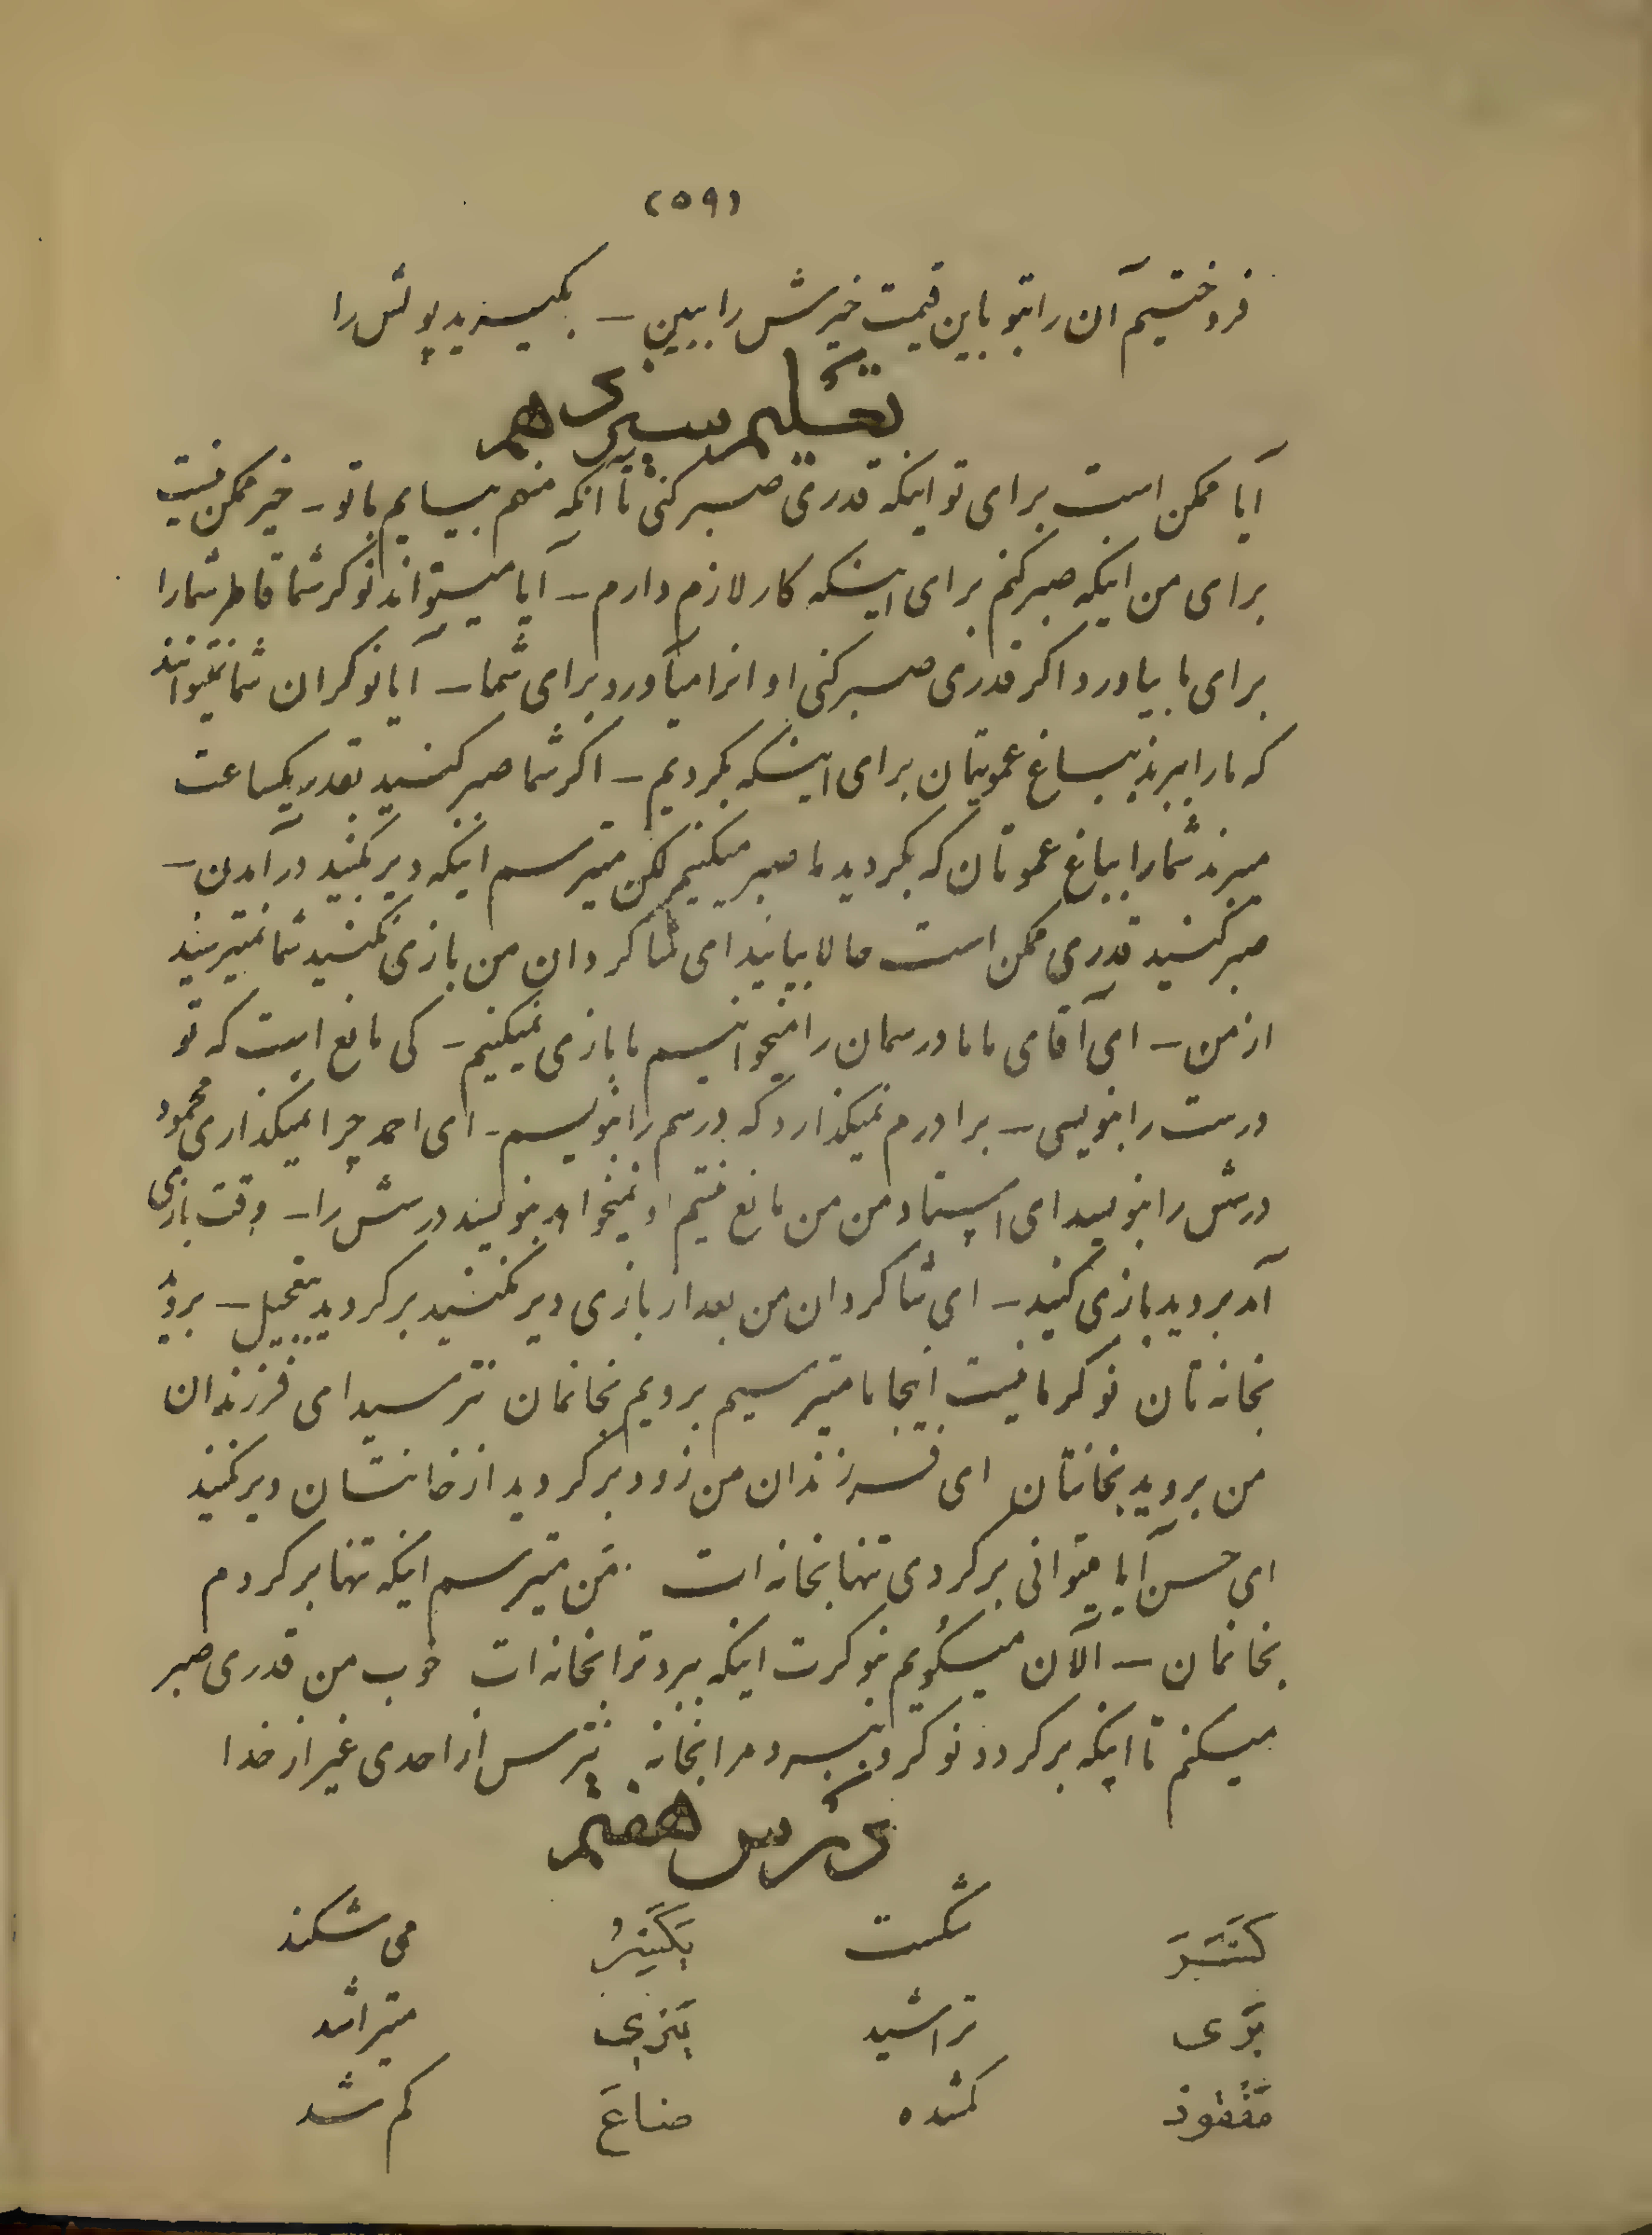 (۵۹)
فروختیم آن را بتو باین قیمت خیرش را ببین – بگیرید پولش را
تعلیم سیزدهم
آیا ممکن است برای تو اینکه قدری صبر کنی تا آنکه منهم بیایم باتو – خیر ممکن نیست
برای من اینکه صبر کنم برای اینکه کار لازم دارم – آیا میتواند نوکر شما قاطر شما را
برای ما بیاورد اگر قدری صبر کنی او انرا میآورد برای شما – آیا نوکران شما نمیتوانند
که ما را ببرند بباغ عمویتان برای اینکه بگردیم – اگر شما صبر کنید بقدر یکساعت
میبرند شما را بباغ عموتان که بگردید ما صبر میکنیم لکن میترسم اینکه دیر بکنید در آمدن –
صبر کنید قدری ممکن است حالا بیائید ای شاگردان من بازی نکنید شما نمیترسید
از من – ای آقای ما ما درسمان را میخوانیم ما بازی نمیکنیم – کی مانع است که تو
درست را بنویسی – برادرم نمیگذارد که درسم را بنویسم – ای احمد چرا نمیگذاری محمود
درسش را بنویسد ای استاد من من مانع نیستم او نمیخواهد بنویسد درسش را – وقت بازی
آمد بروید بازی کنید – ای شاگردان من بعد از بازی دیر نکنید برگردید بتعجیل – بروید
بخانه تان نوکر ما نیست اینجا ما میترسیم برویم بخانمان نترسید ای فرزندان
من بروید بخانتان ای فرزندان من زود برگردید از خانتان دیر نکنید
ای حسن آیا میتوانی برگردی تنها بخانه ات من میترسم اینکه تنها برگردم
بخانمان – الآن میگویم بنوکرت اینکه ببرد ترا بخانه ات خوب من قدری صبر
میکنم تا اینکه برگردد نوکر و ببرد مرا بخانه نترس از احدی غیر از خدا
درس هفتم
کَسَرَ شکست یَکْسِرُ می شکند
بَرَی تراشید یَبْرِی میتراشد
مَفْقُود گمشده ضاعَ گم شد